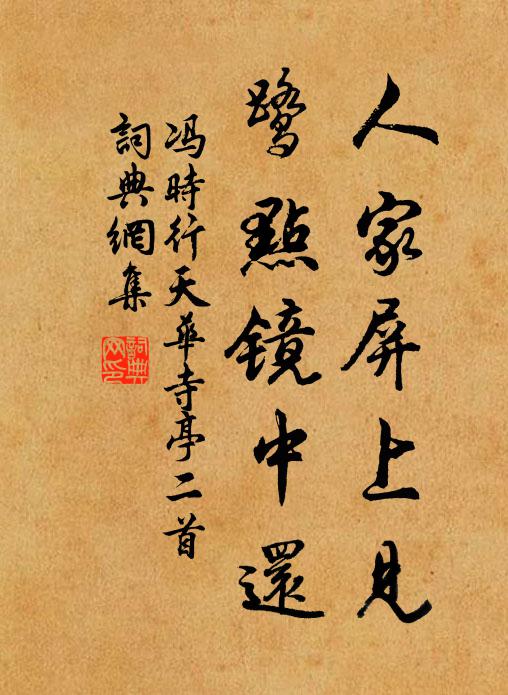 人家屏上見
鷺點鏡中還
馮時行天華寺亭二首
詞典網集
詞典網印